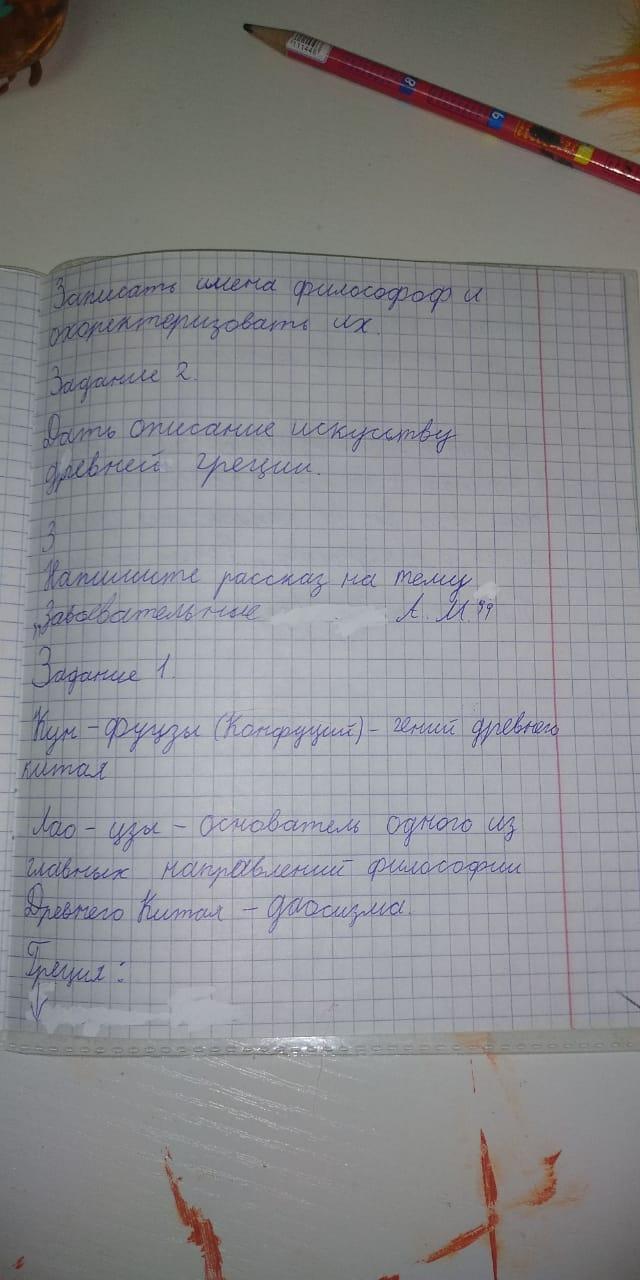 Записать имена философоф и
охоректеризовать их.
Задание 2.
Дать описание искусству
древней греции.
3
Напишите рассказ на тему
„Завоевательные А. М."
Задание 1.
Кун-фуцзы (Конфуций) - гений древнего
китая
Лао-цзы - основатель одного из
главных направлений философии
Древнего Китая - даосизма.
Греция:
↓